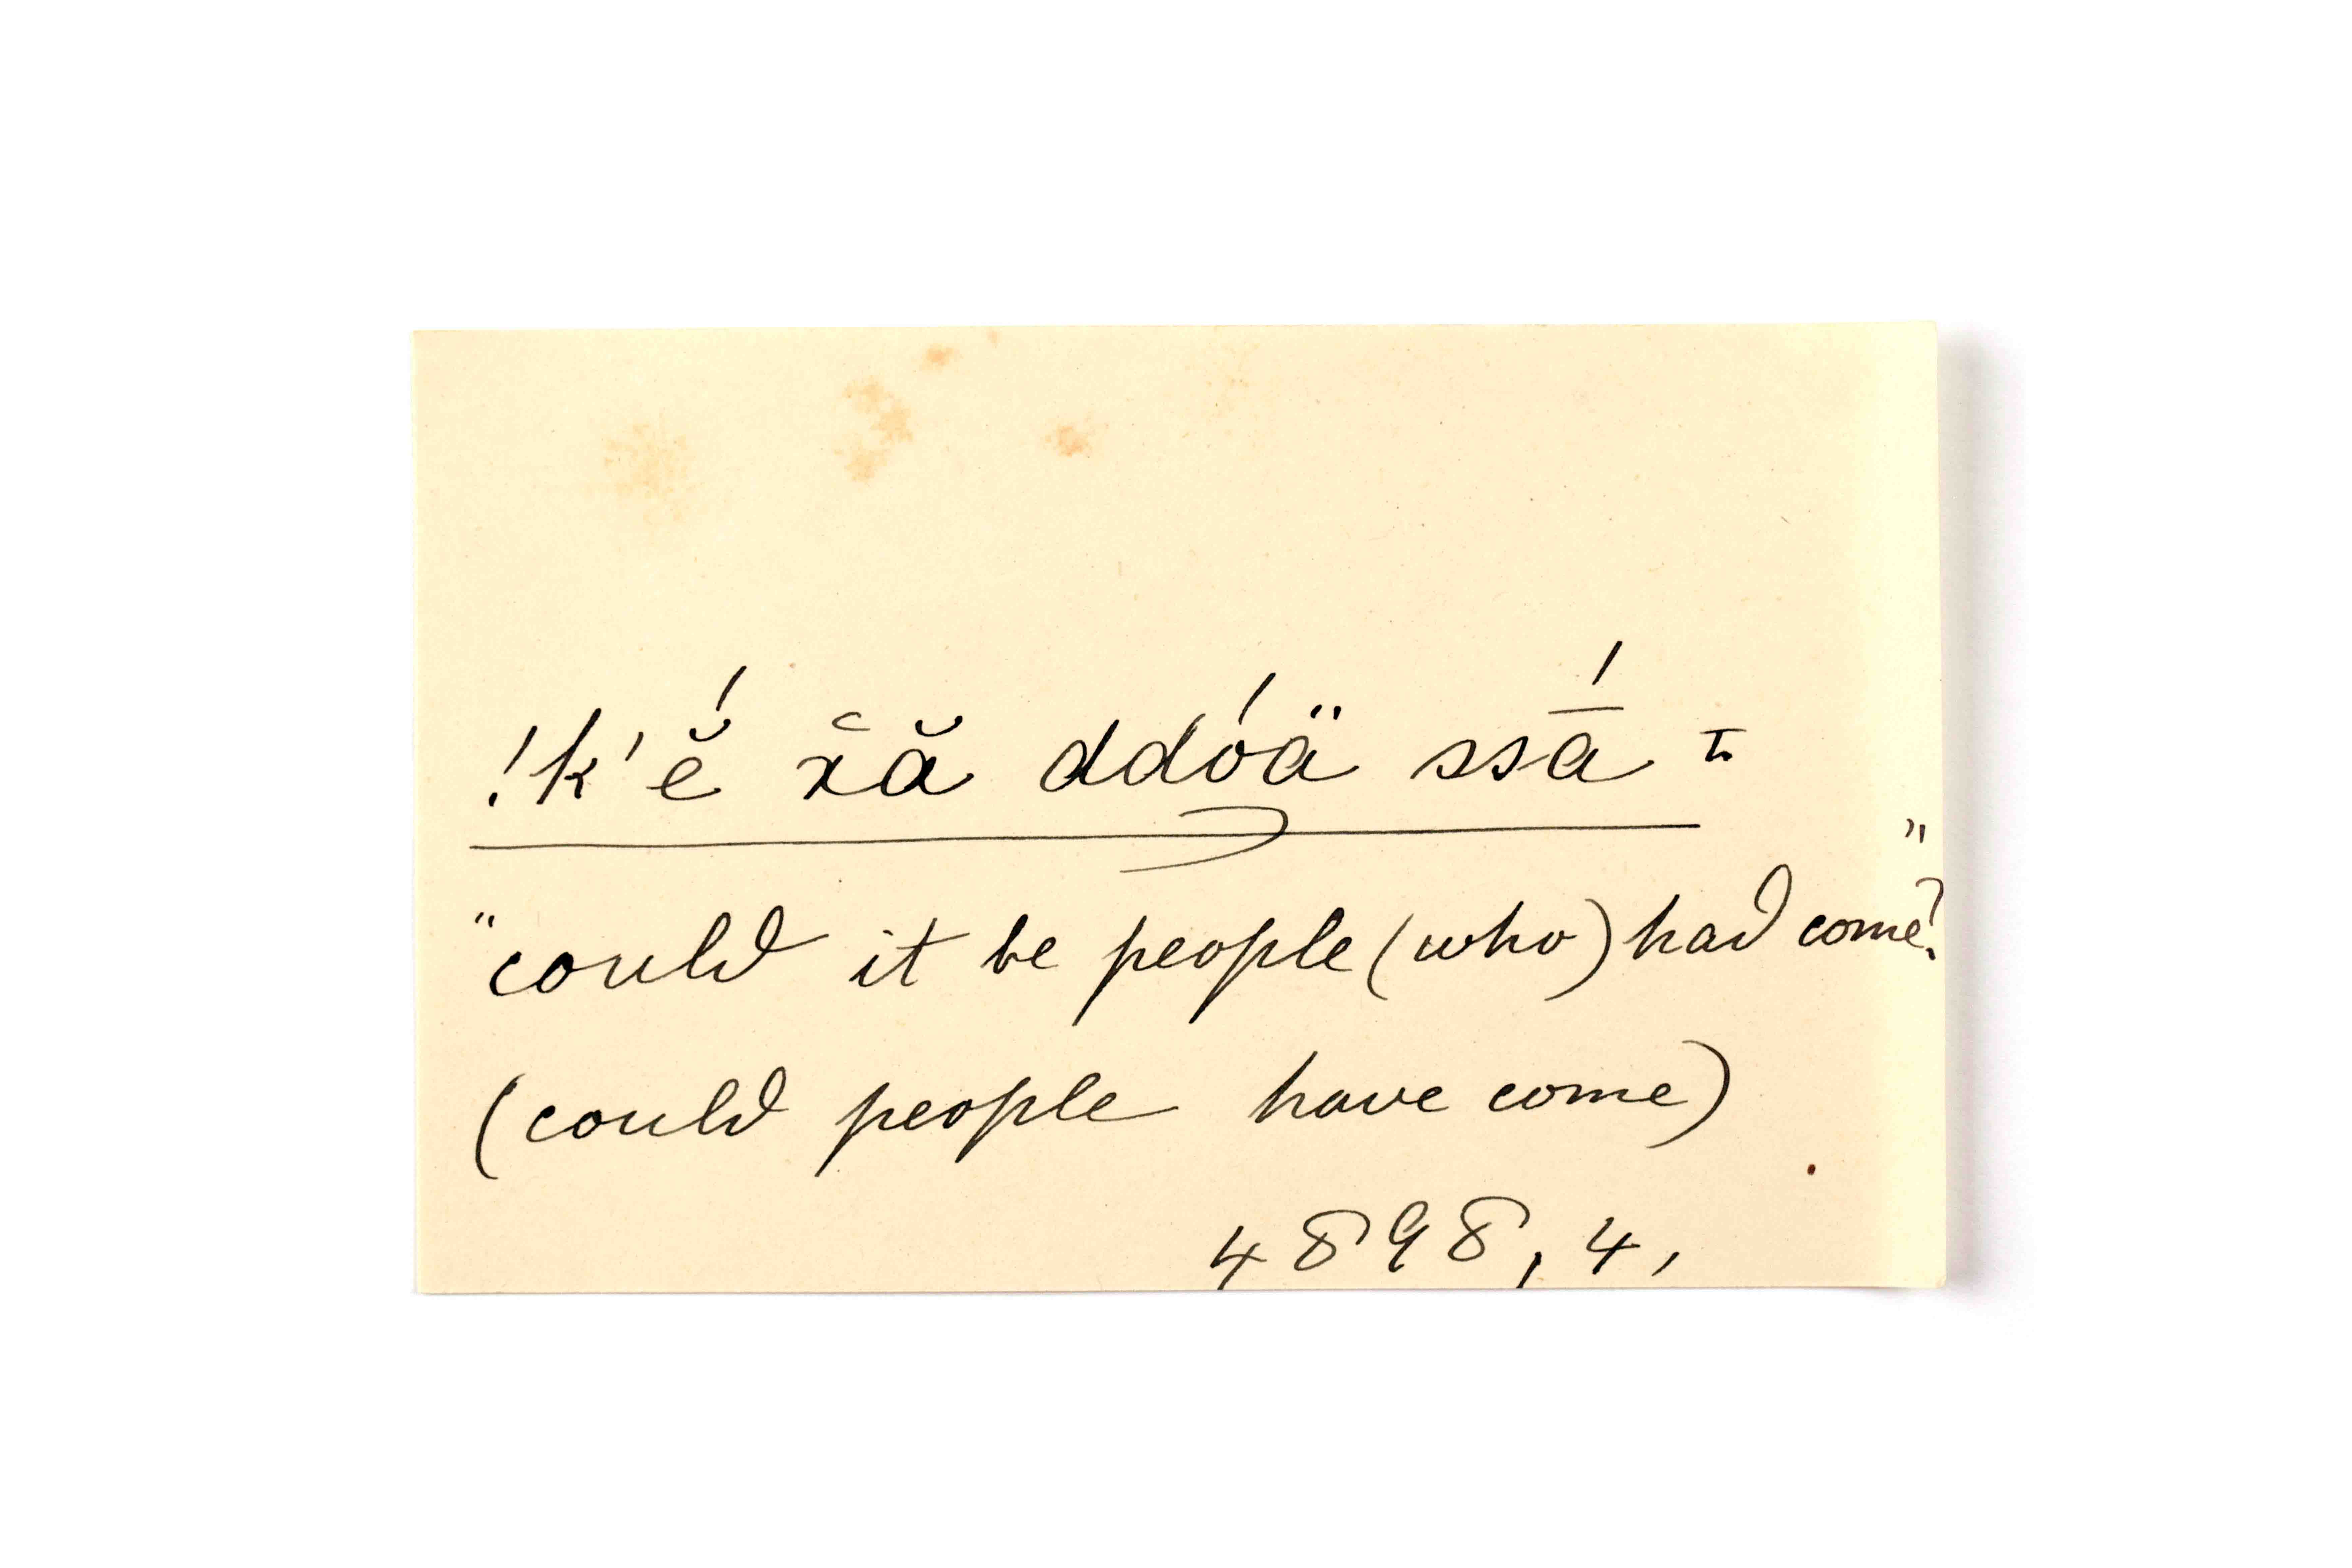 !k'ĕ́ x̑ă ddóä ssā́ ɪ
"could it be people (who) had come?"
(could people have come)
4898, 4,